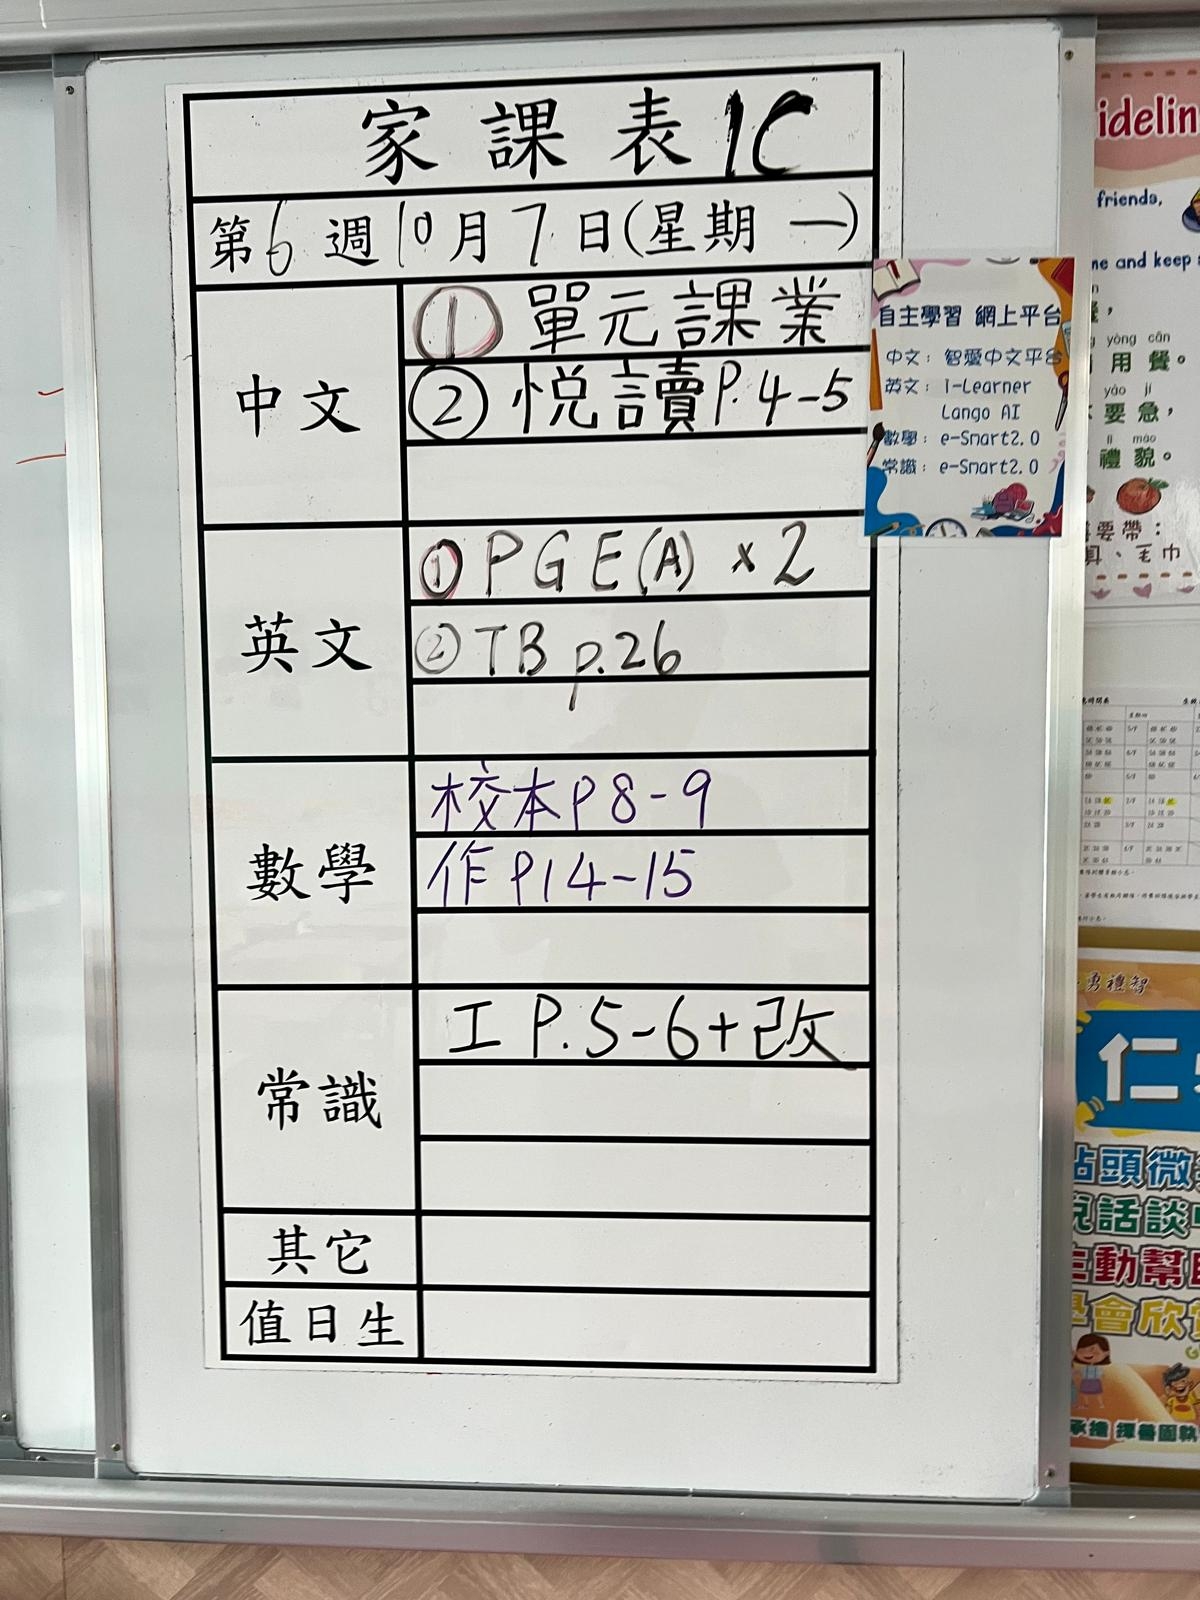 家課表 1C
第6週10月7日(星期一)
中文
① 單元課業
② 悅讀P.4-5
英文
① PGE(A) x2
② TB p.26
數學
校本P8-9
作P14-15
常識
工 P.5-6+改
其它
值日生
自主學習 網上平台
中文：智愛中文平台
英文：i-Learner
Lango AI
數學：e-Smart2.0
常識：e-Smart2.0
idelin
friends,
me and keep
yòng cān
用餐。
yáo jí
要急，
lǐ mào
禮貌。
要帶：
、毛巾
勇禮智
仁
頭微
話談
動幫
會欣
承擔